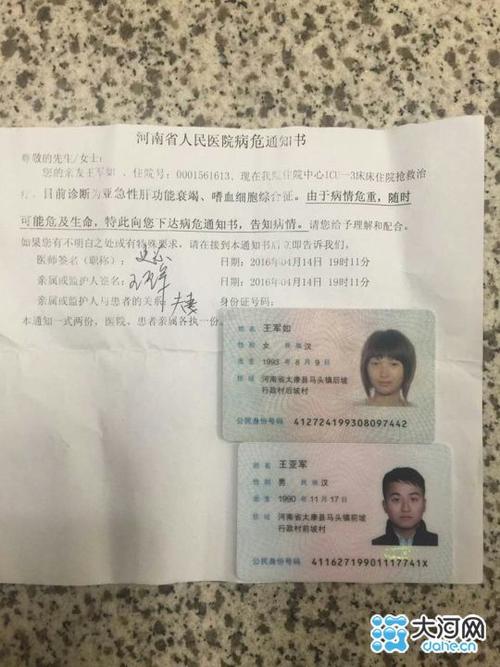 河南省人民医院病危通知书
尊敬的先生/女士:
您的亲友王军如、住院号:0001561613、现在我院住院中心ICU一3床床住院抢救治
疗、目前诊断为亚急性肝功能衰竭、嗜血细胞综合征。由于病情危重,随时
可能危及生命,特此向您下达病危通知书,告知病情。请您给予理解和配合。
如果您有不明白之处或有特殊要求,请在接到本通知书后立即告诉我们。
医师签名(职称): 日期:2016年04月14日 19时11分
亲属或监护人签名: 王亚军 日期:2016年04月14日 19时11分
亲属或监护人与患者的关系: 夫妻 身份证号码:
本通知一式两份,医院、患者亲属各执一份。
姓名 王军如
性别 女 民族 汉
出生 1993 年 8 月 9 日
住址 河南省太康县马头镇后坡
行政村后坡村
公民身份号码 412724199308097442
姓名 王亚军
性别 男 民族 汉
出生 1990 年 11 月 17 日
住址 河南省太康县马头镇前坡
行政村前坡村
公民身份号码 41162719901117741X
大河网
dahe.cn